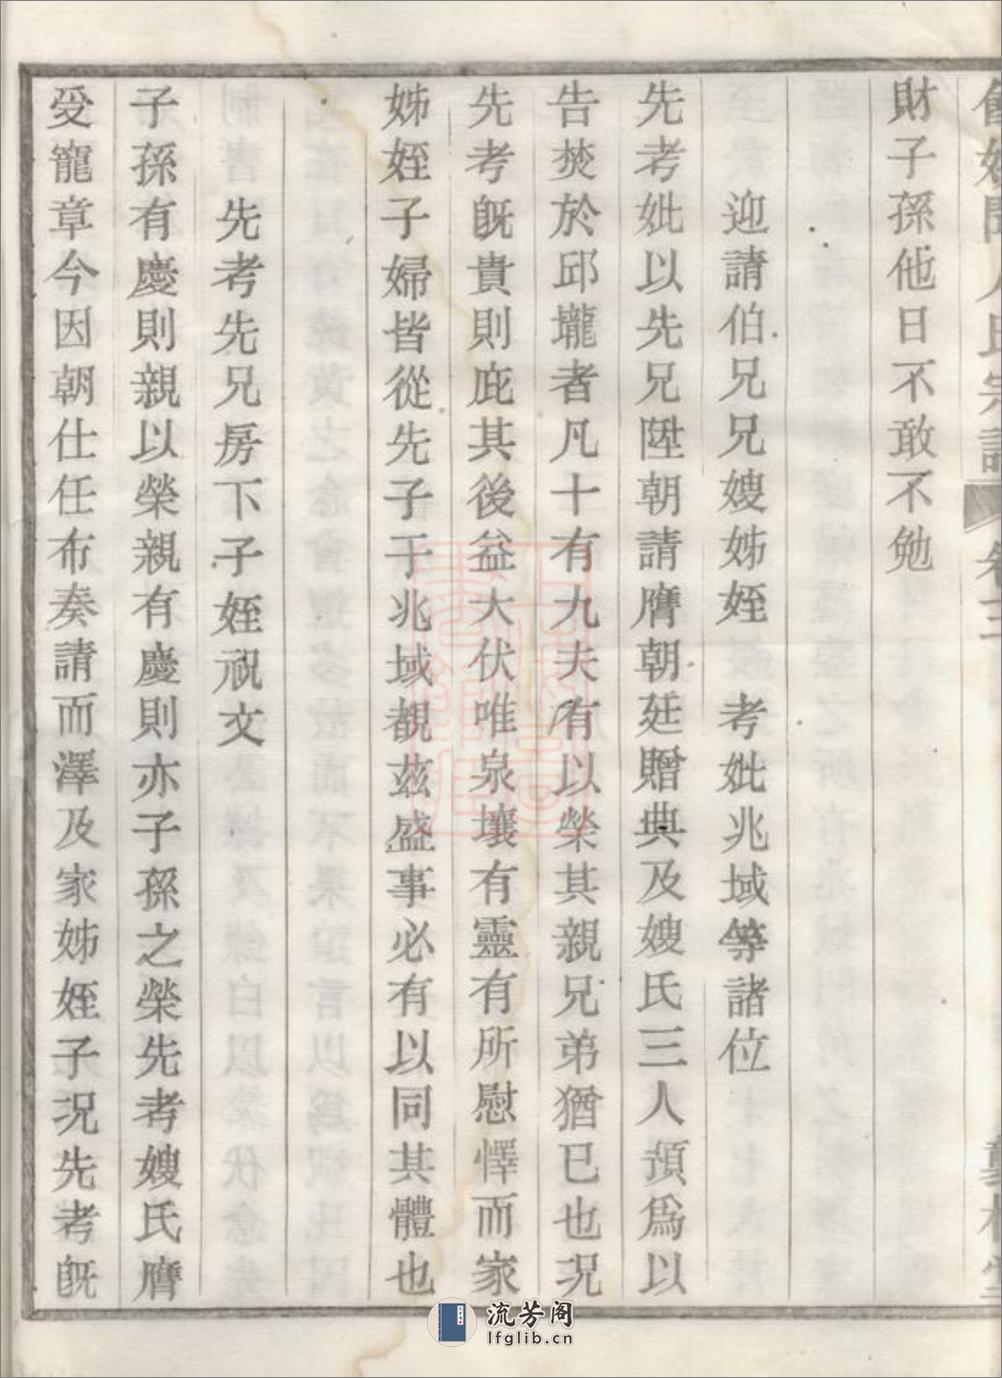 財子孫他日不敢不勉
迎請伯兄兄嫂姊姪　考妣兆域等諸位
先考妣以先兄陞朝請膺朝廷贈典及嫂氏三人預爲以
告焚於邱壠者凡十有九夫有以榮其親兄弟猶已也况
先考旣貴則庇其後益大伏唯泉壤有靈有所慰懌而家
姊姪子婦皆從先子于兆域覩茲盛事必有以同其體也
先考先兄房下子姪祝文
子孫有慶則親以榮親有慶則亦子孫之榮先考嫂氏膺
受寵章今因朝仕任布奏請而澤及家姊姪子况先考旣
流芳阁
lfglib.cn